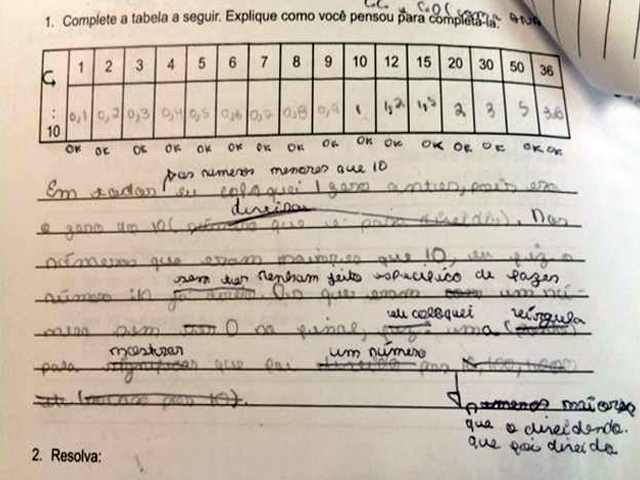 1. Complete a tabela a seguir. Explique como você pensou para completá-la.
1 2 3 4 5 6 7 8 9 10 12 15 20 30 50 36
: 10 0,1 0,2 0,3 0,4 0,5 0,6 0,7 0,8 0,9 1 1,2 1,5 2 3 5 3.6
OK OK OK OK OK OK OK OK OK OK OK OK OK OK OK OK
nos números menores que 10
Em todas eu coloquei 1 zero antes, pois era
dividir
o zero do 10 que para dividir). Nos
números que eram maiores que 10, eu fiz o
sem ter nenhum jeito específico de fazer
número Os que eram um nú-
eu coloquei vírgula
mero sem 0 no final, uma
mostrar um número
para que foi por 10, 100, 1000
maiores
que o dividendo.
que foi dividido
2. Resolva: